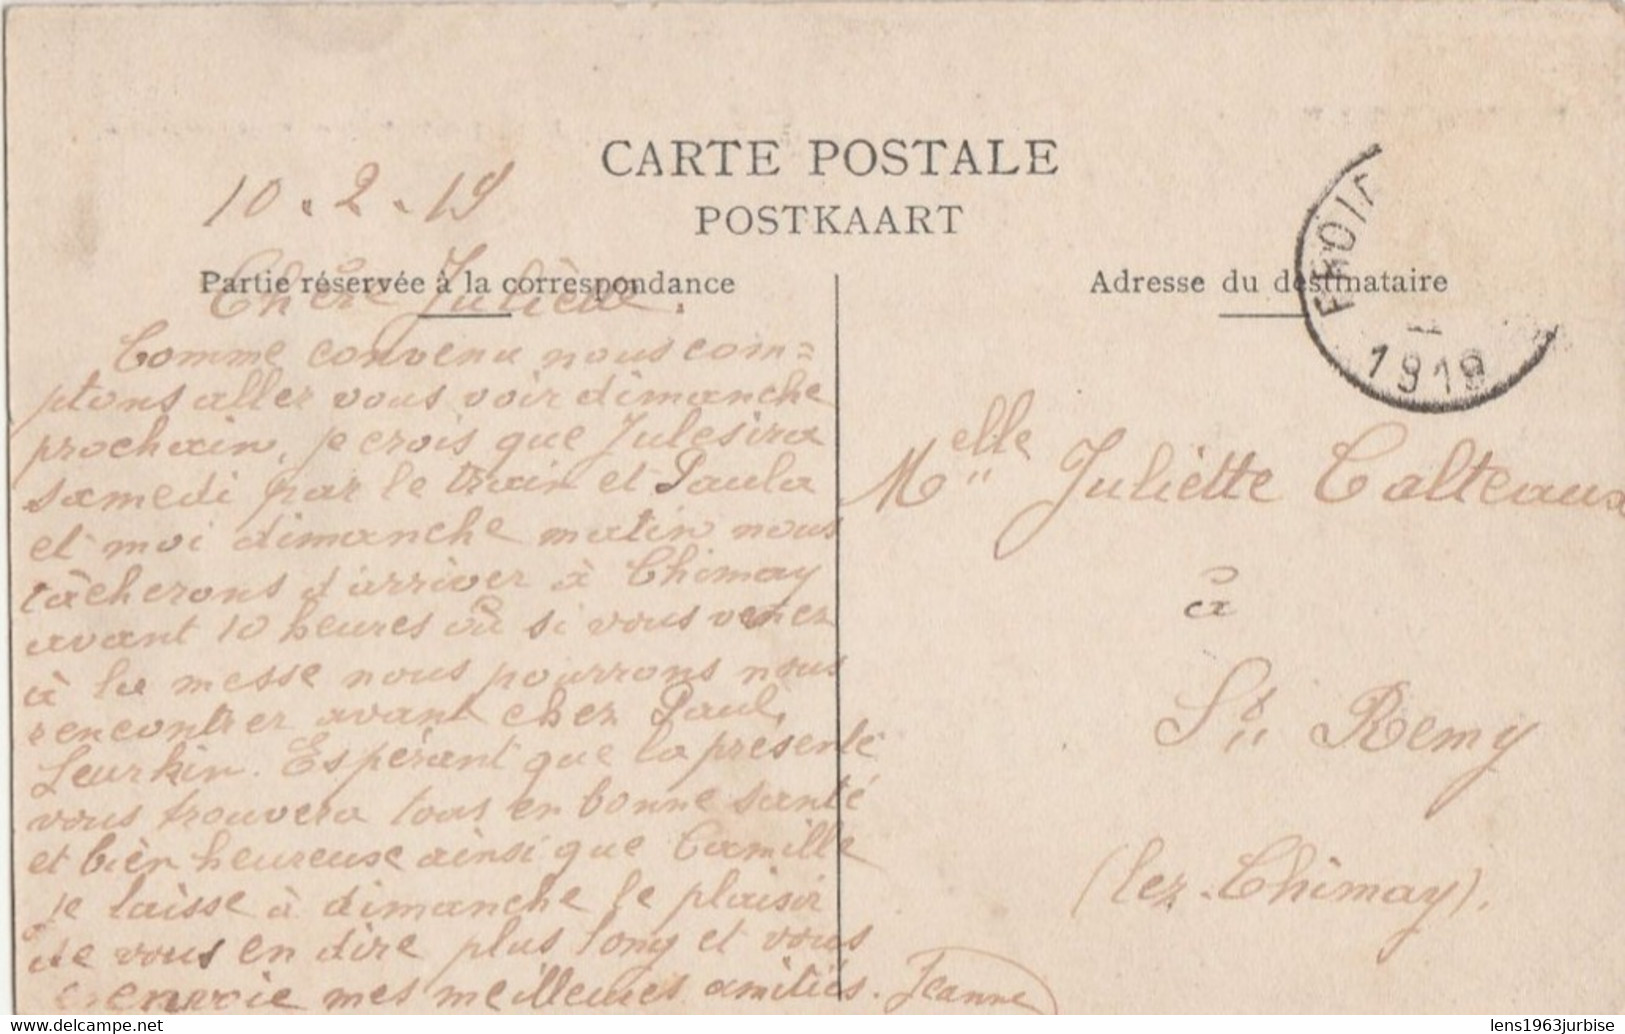 CARTE POSTALE
POSTKAART
10.2.19
Partie réservée à la correspondance
Chère Juliette.
Comme convenu nous com=
ptons aller vous voir dimanche
prochain, je crois que Jules ira
samedi par le train et Paula
et moi dimanche matin nous
tâcherons d'arriver à Chimay
avant 10 heures où si vous venez
à la messe nous pourrons nous
rencontrer avant chez Paul
Leurkin. Espérant que la présente
vous trouvera tous en bonne santé
et bièn heureuse ainsi que Camille
je laisse à dimanche le plaisir
de vous en dire plus long et vous
envoie mes meilleures amitiés. Jeanne
Adresse du destinataire
1919
Melle Juliette Calteaux
à
St Remy
(lez-Chimay).
lens1963jurbise
www.delcampe.net